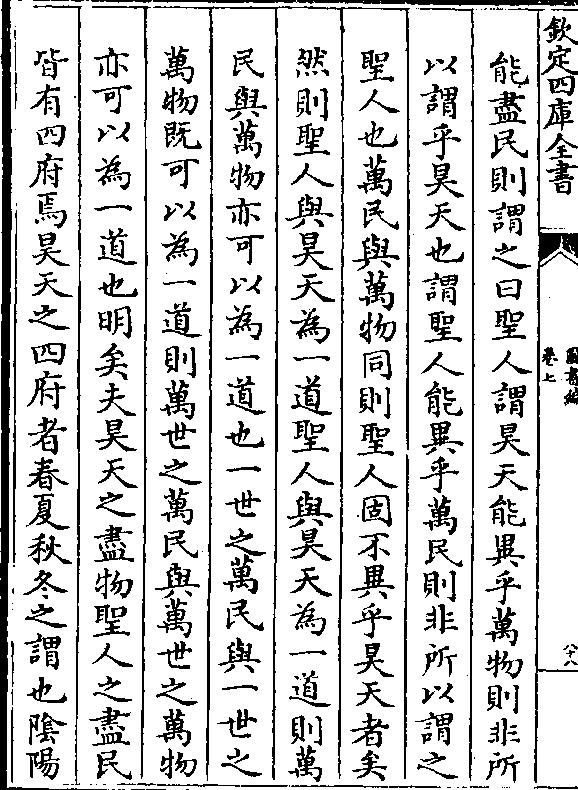 欽定四庫全書
圖書編
卷上
八十八
能盡民則謂之曰聖人謂昊天能異乎萬物則非所
以謂乎昊天也謂聖人能異乎萬民則非所以謂之
聖人也萬民與萬物同則聖人固不異乎昊天者矣
然則聖人與昊天為一道聖人與昊天為一道則萬
民與萬物亦可以為一道也一世之萬民與一世之
萬物既可以為一道則萬世之萬民與萬世之萬物
亦可以為一道也明矣夫昊天之盡物聖人之盡民
皆有四府焉昊天之四府者春夏秋冬之謂也陰陽